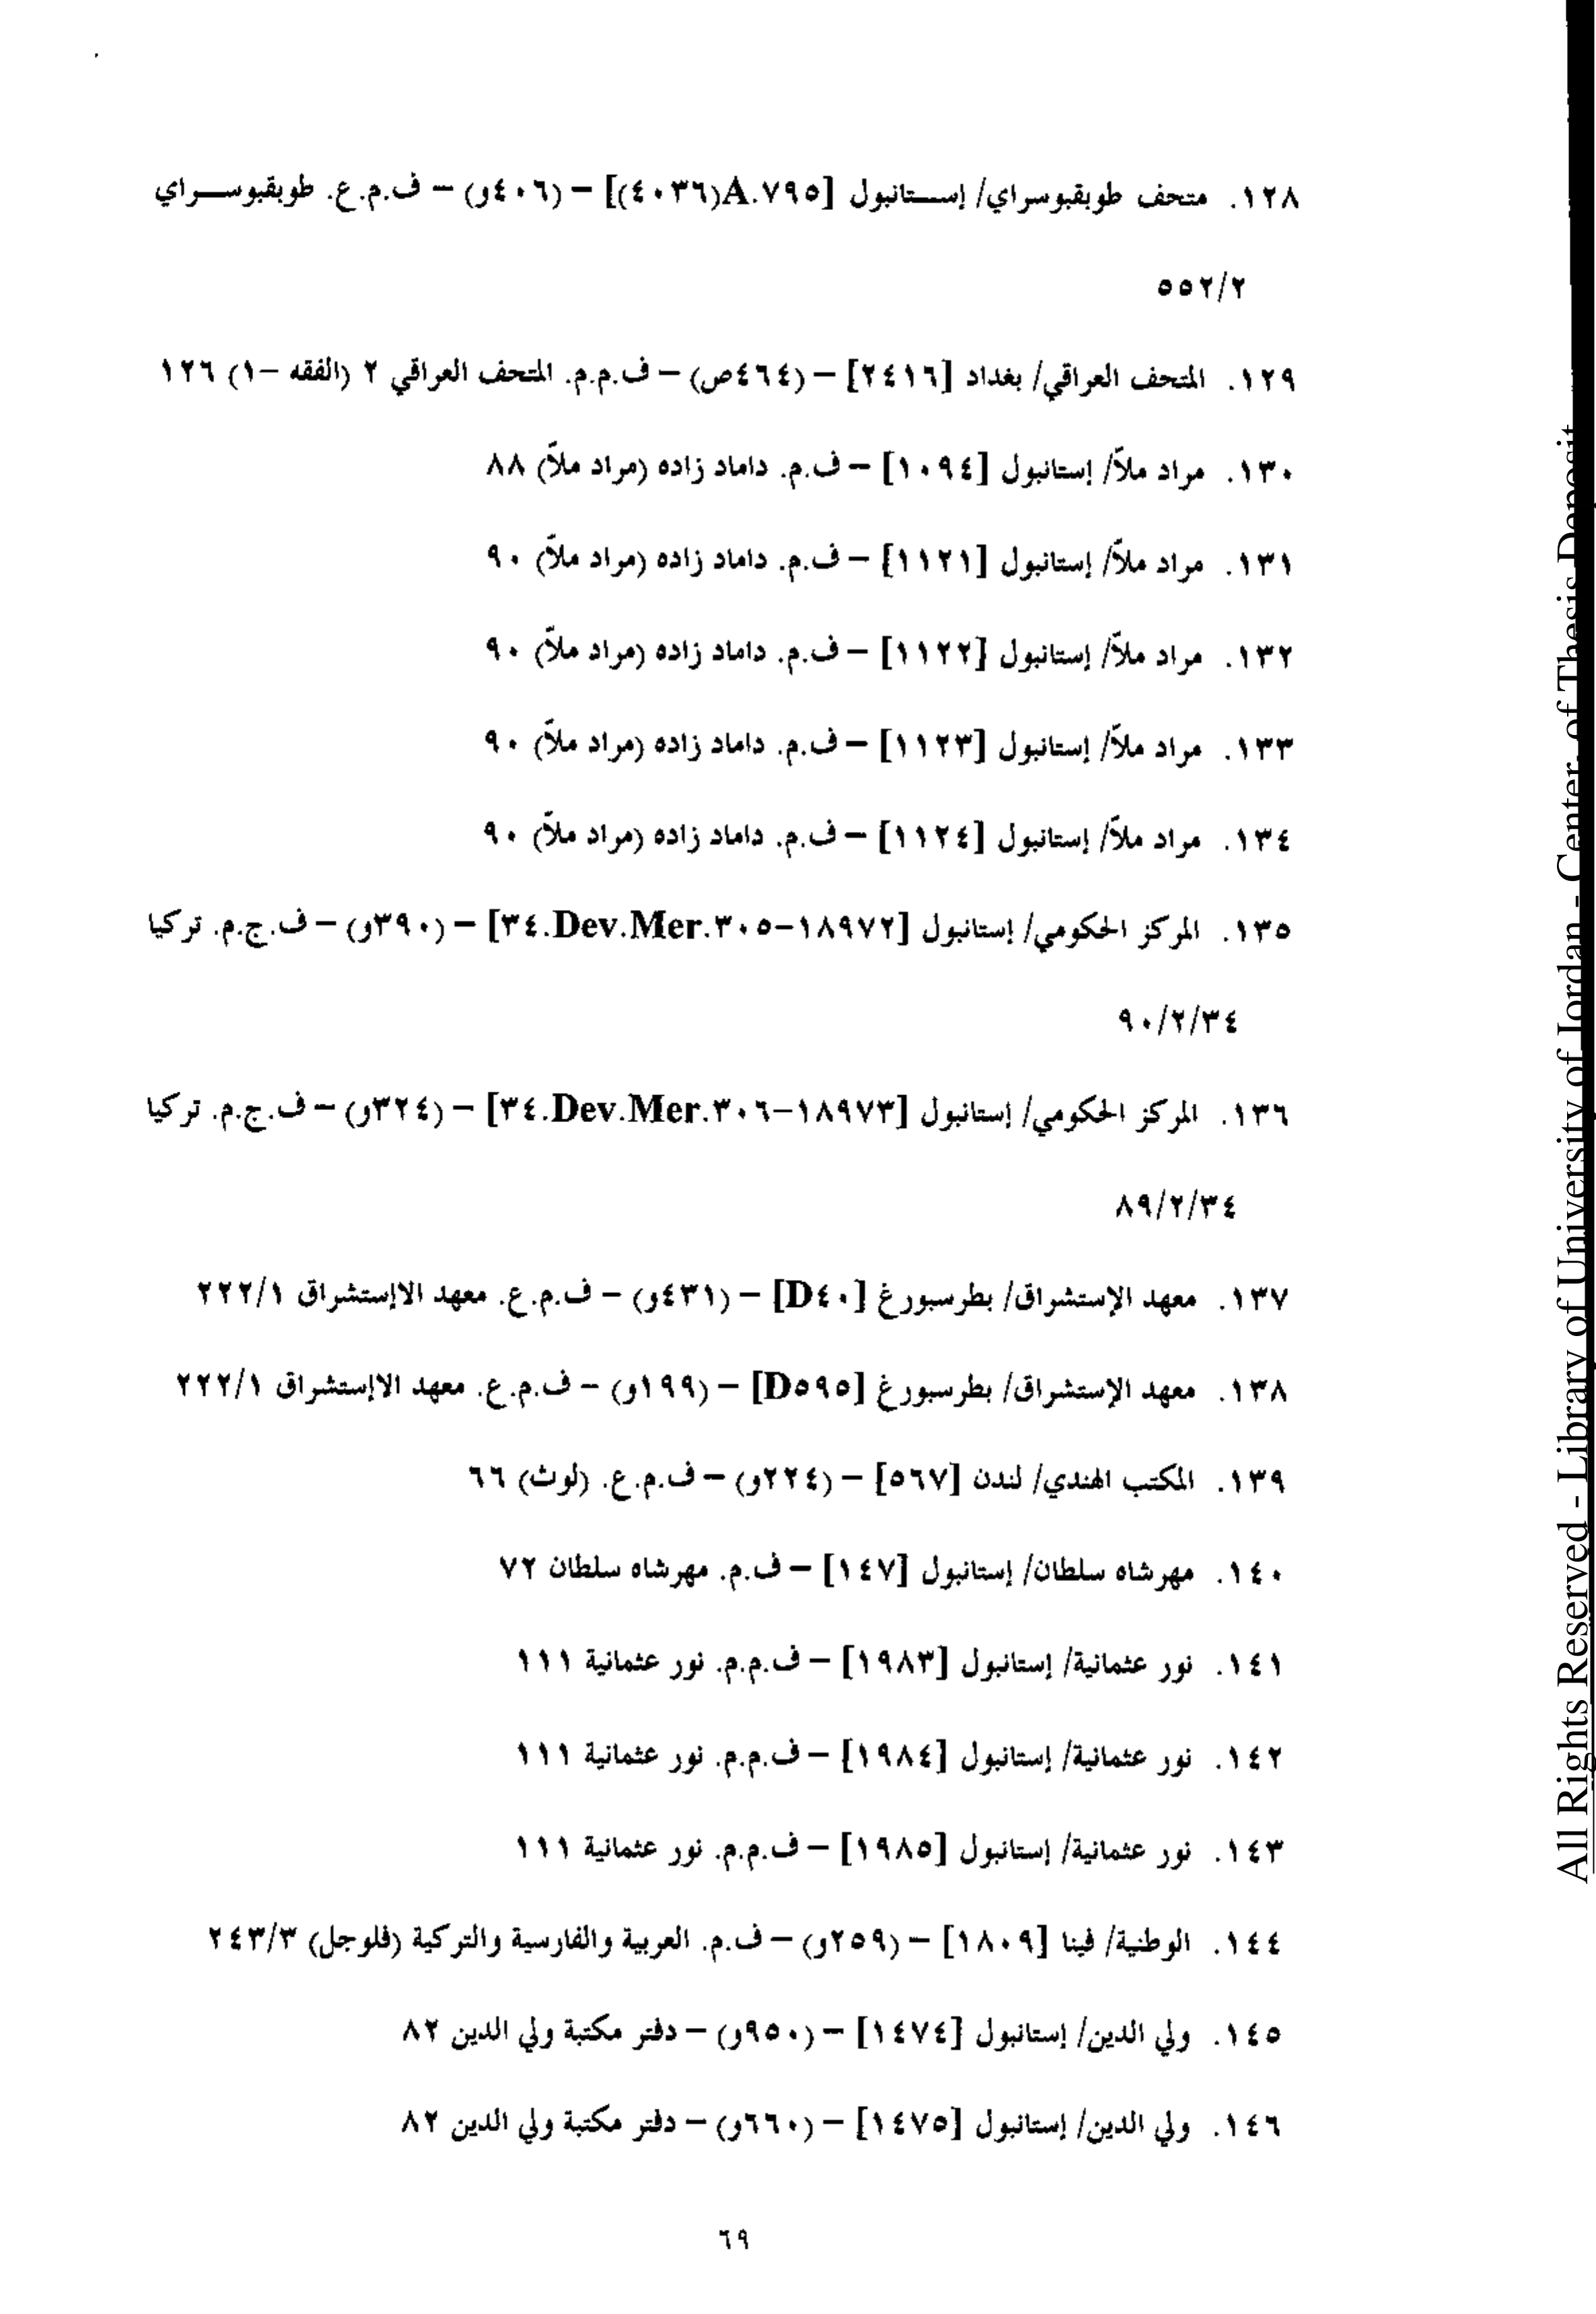 ١٢٨. متحف طوبقبوسراي/ إستانبول [A.٧٩٥(٤٠٣٦)] – (٤٠٦و) – ف.م.ع. طوبقبوسراي
٥٥٢/٢
١٢٩. المتحف العراقي/ بغداد [٢٤١٦] – (٤٦٤ص) – ف.م.م. المتحف العراقي ٢ (الفقه –١) ١٢٦
١٣٠. مراد ملاّ/ إستانبول [١٠٩٤] – ف.م. داماد زاده (مراد ملاّ) ٨٨
١٣١. مراد ملاّ/ إستانبول [١١٢١] – ف.م. داماد زاده (مراد ملاّ) ٩٠
١٣٢. مراد ملاّ/ إستانبول [١١٢٢] – ف.م. داماد زاده (مراد ملاّ) ٩٠
١٣٣. مراد ملاّ/ إستانبول [١١٢٣] – ف.م. داماد زاده (مراد ملاّ) ٩٠
١٣٤. مراد ملاّ/ إستانبول [١١٢٤] – ف.م. داماد زاده (مراد ملاّ) ٩٠
١٣٥. المركز الحكومي/ إستانبول [٣٤.Dev.Mer.٣٠٥–١٨٩٧٢] – (٣٩٠و) – ف.ج.م. تركيا
٩٠/٢/٣٤
١٣٦. المركز الحكومي/ إستانبول [٣٤.Dev.Mer.٣٠٦–١٨٩٧٣] – (٣٢٤و) – ف.ج.م. تركيا
٨٩/٢/٣٤
١٣٧. معهد الإستشراق/ بطرسبورغ [D٤٠] – (٤٣١و) – ف.م.ع. معهد الاإستشراق ٢٢٢/١
١٣٨. معهد الإستشراق/ بطرسبورغ [D٥٩٥] – (١٩٩و) – ف.م.ع. معهد الاإستشراق ٢٢٢/١
١٣٩. المكتب الهندي/ لندن [٥٦٧] – (٢٢٤و) – ف.م.ع. (لوث) ٦٦
١٤٠. مهرشاه سلطان/ إستانبول [١٤٧] – ف.م. مهرشاه سلطان ٧٢
١٤١. نور عثمانية/ إستانبول [١٩٨٣] – ف.م.م. نور عثمانية ١١١
١٤٢. نور عثمانية/ إستانبول [١٩٨٤] – ف.م.م. نور عثمانية ١١١
١٤٣. نور عثمانية/ إستانبول [١٩٨٥] – ف.م.م. نور عثمانية ١١١
١٤٤. الوطنية/ فينا [١٨٠٩] – (٢٥٩و) – ف.م. العربية والفارسية والتركية (فلوجل) ٢٤٣/٣
١٤٥. ولي الدين/ إستانبول [١٤٧٤] – (٩٥٠و) – دفتر مكتبة ولي الدين ٨٢
١٤٦. ولي الدين/ إستانبول [١٤٧٥] – (٦٦٠و) – دفتر مكتبة ولي الدين ٨٢
٦٩
All Rights Reserved - Library of University of Jordan - Center of Thesis Deposit